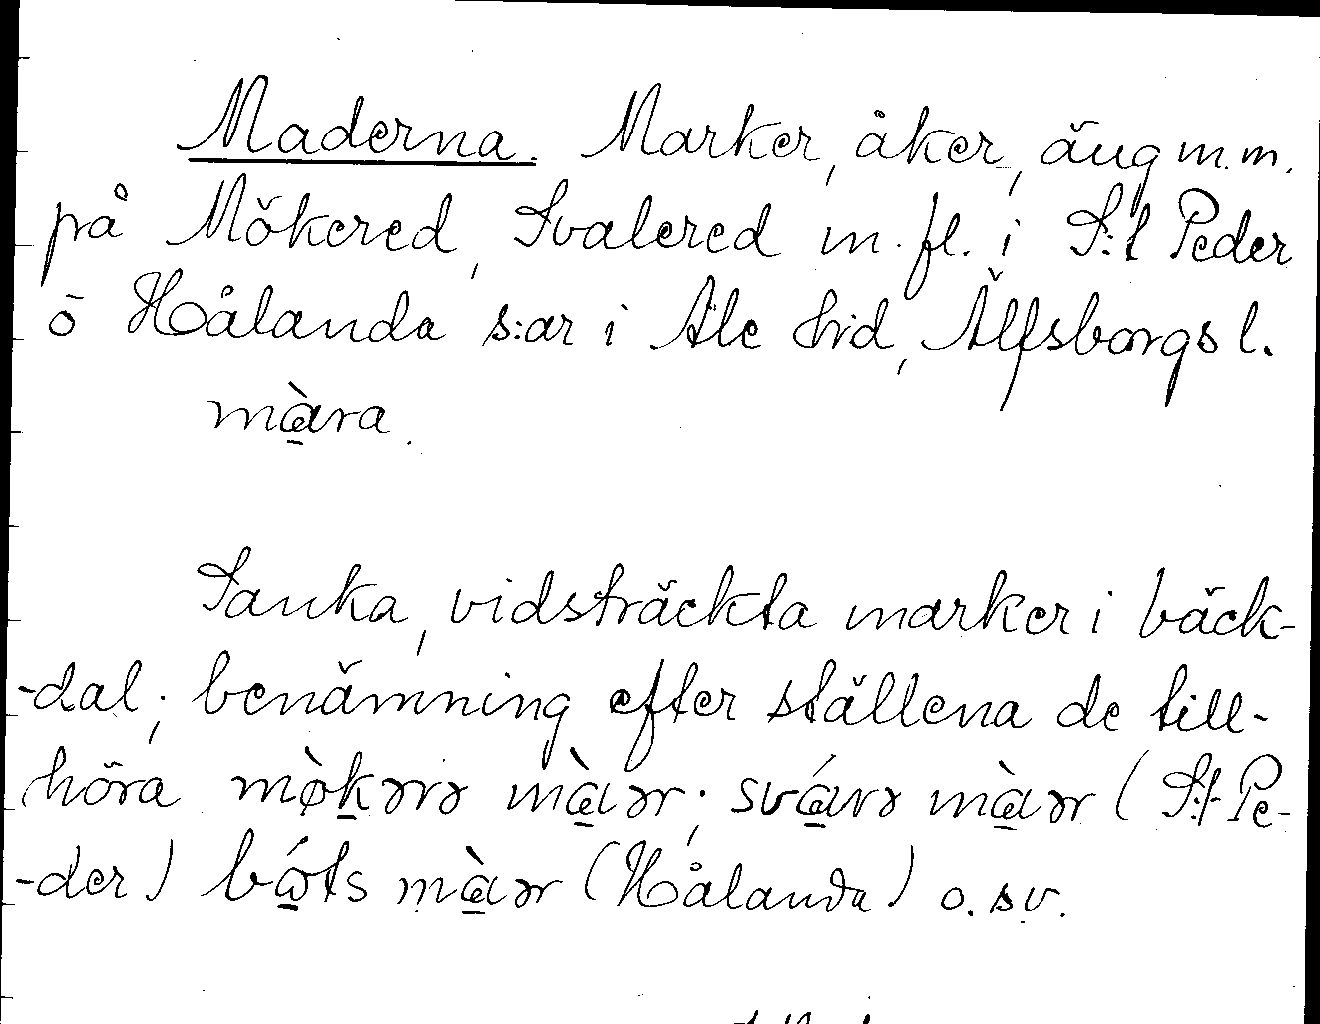 Maderna. Marker, åker, äng m.m.
på Mökered, Svalered m. fl. i S:t Peder
o Hålanda s:ar i Ale hrd, Älfsborgs l.
màra.
Sanka, vidsträckta marker i bäck-
-dal; benämning efter ställena de till-
höra mø̀kərə màər; svárə màər (S:t Pe-
-der) bǿts màər (Hålanda) o. s v.